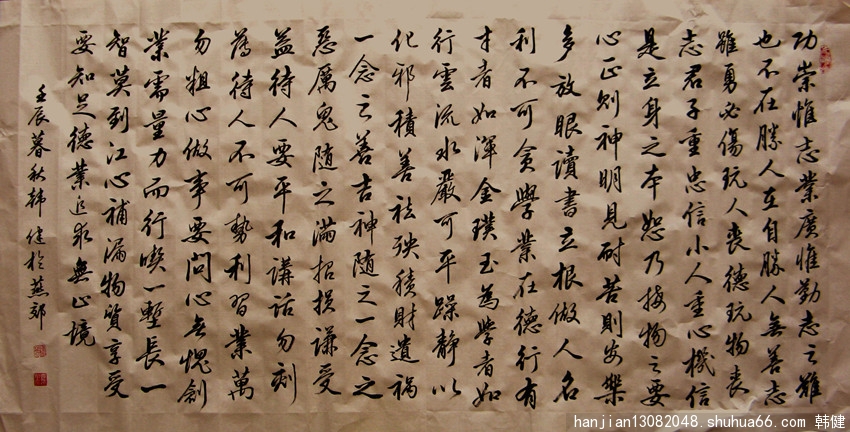 功崇惟志業廣惟勤志之難
也不在勝人在自勝人無善志
雖勇必傷玩人喪德玩物喪
志君子重忠信小人重心機信
是立身之本恕乃接物之要
心正则神明見耐苦則安樂
多放眼讀書立根做人名
利不可貪學業在德行有
才者如渾金璞玉為學者如
行雲流水嚴可平躁静以
化邪積善祛殃積財遺禍
一念之善吉神随之一念之
惡厲鬼随之满招损谦受
益待人要平和講話勿刻
薄待人不可勢利習業萬
勿粗心做事要问心无愧創
業需量力而行喫一塹長一
智莫到江心補漏物質享受
要知足德業追求無止境
壬辰暮秋韩健於燕郊
hanjian13082048.shuhua66.com 韩健